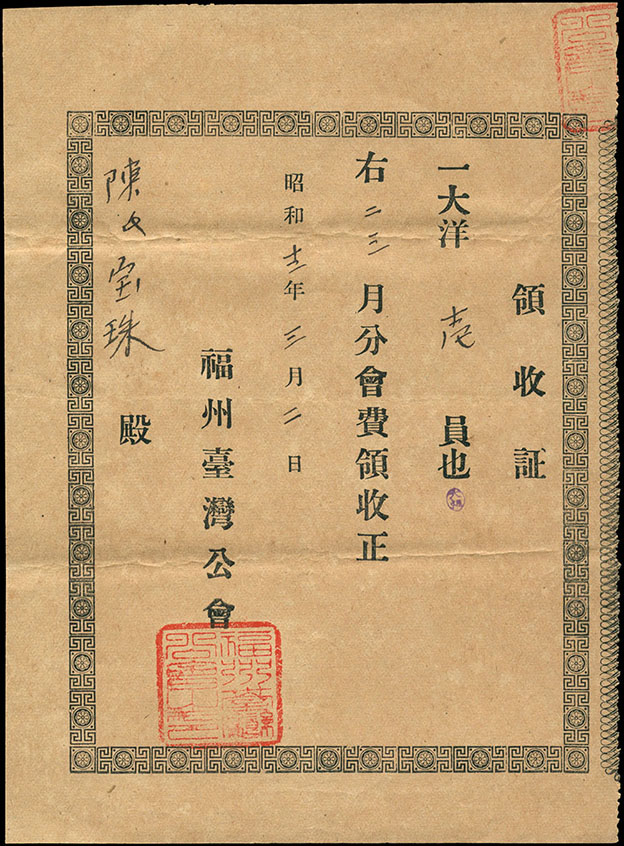 領收証
一大洋 壱 員也
右 二三 月分會費領收正
昭和 十三 年 三 月 二 日
福州臺灣公會
陳氏宝珠 殿